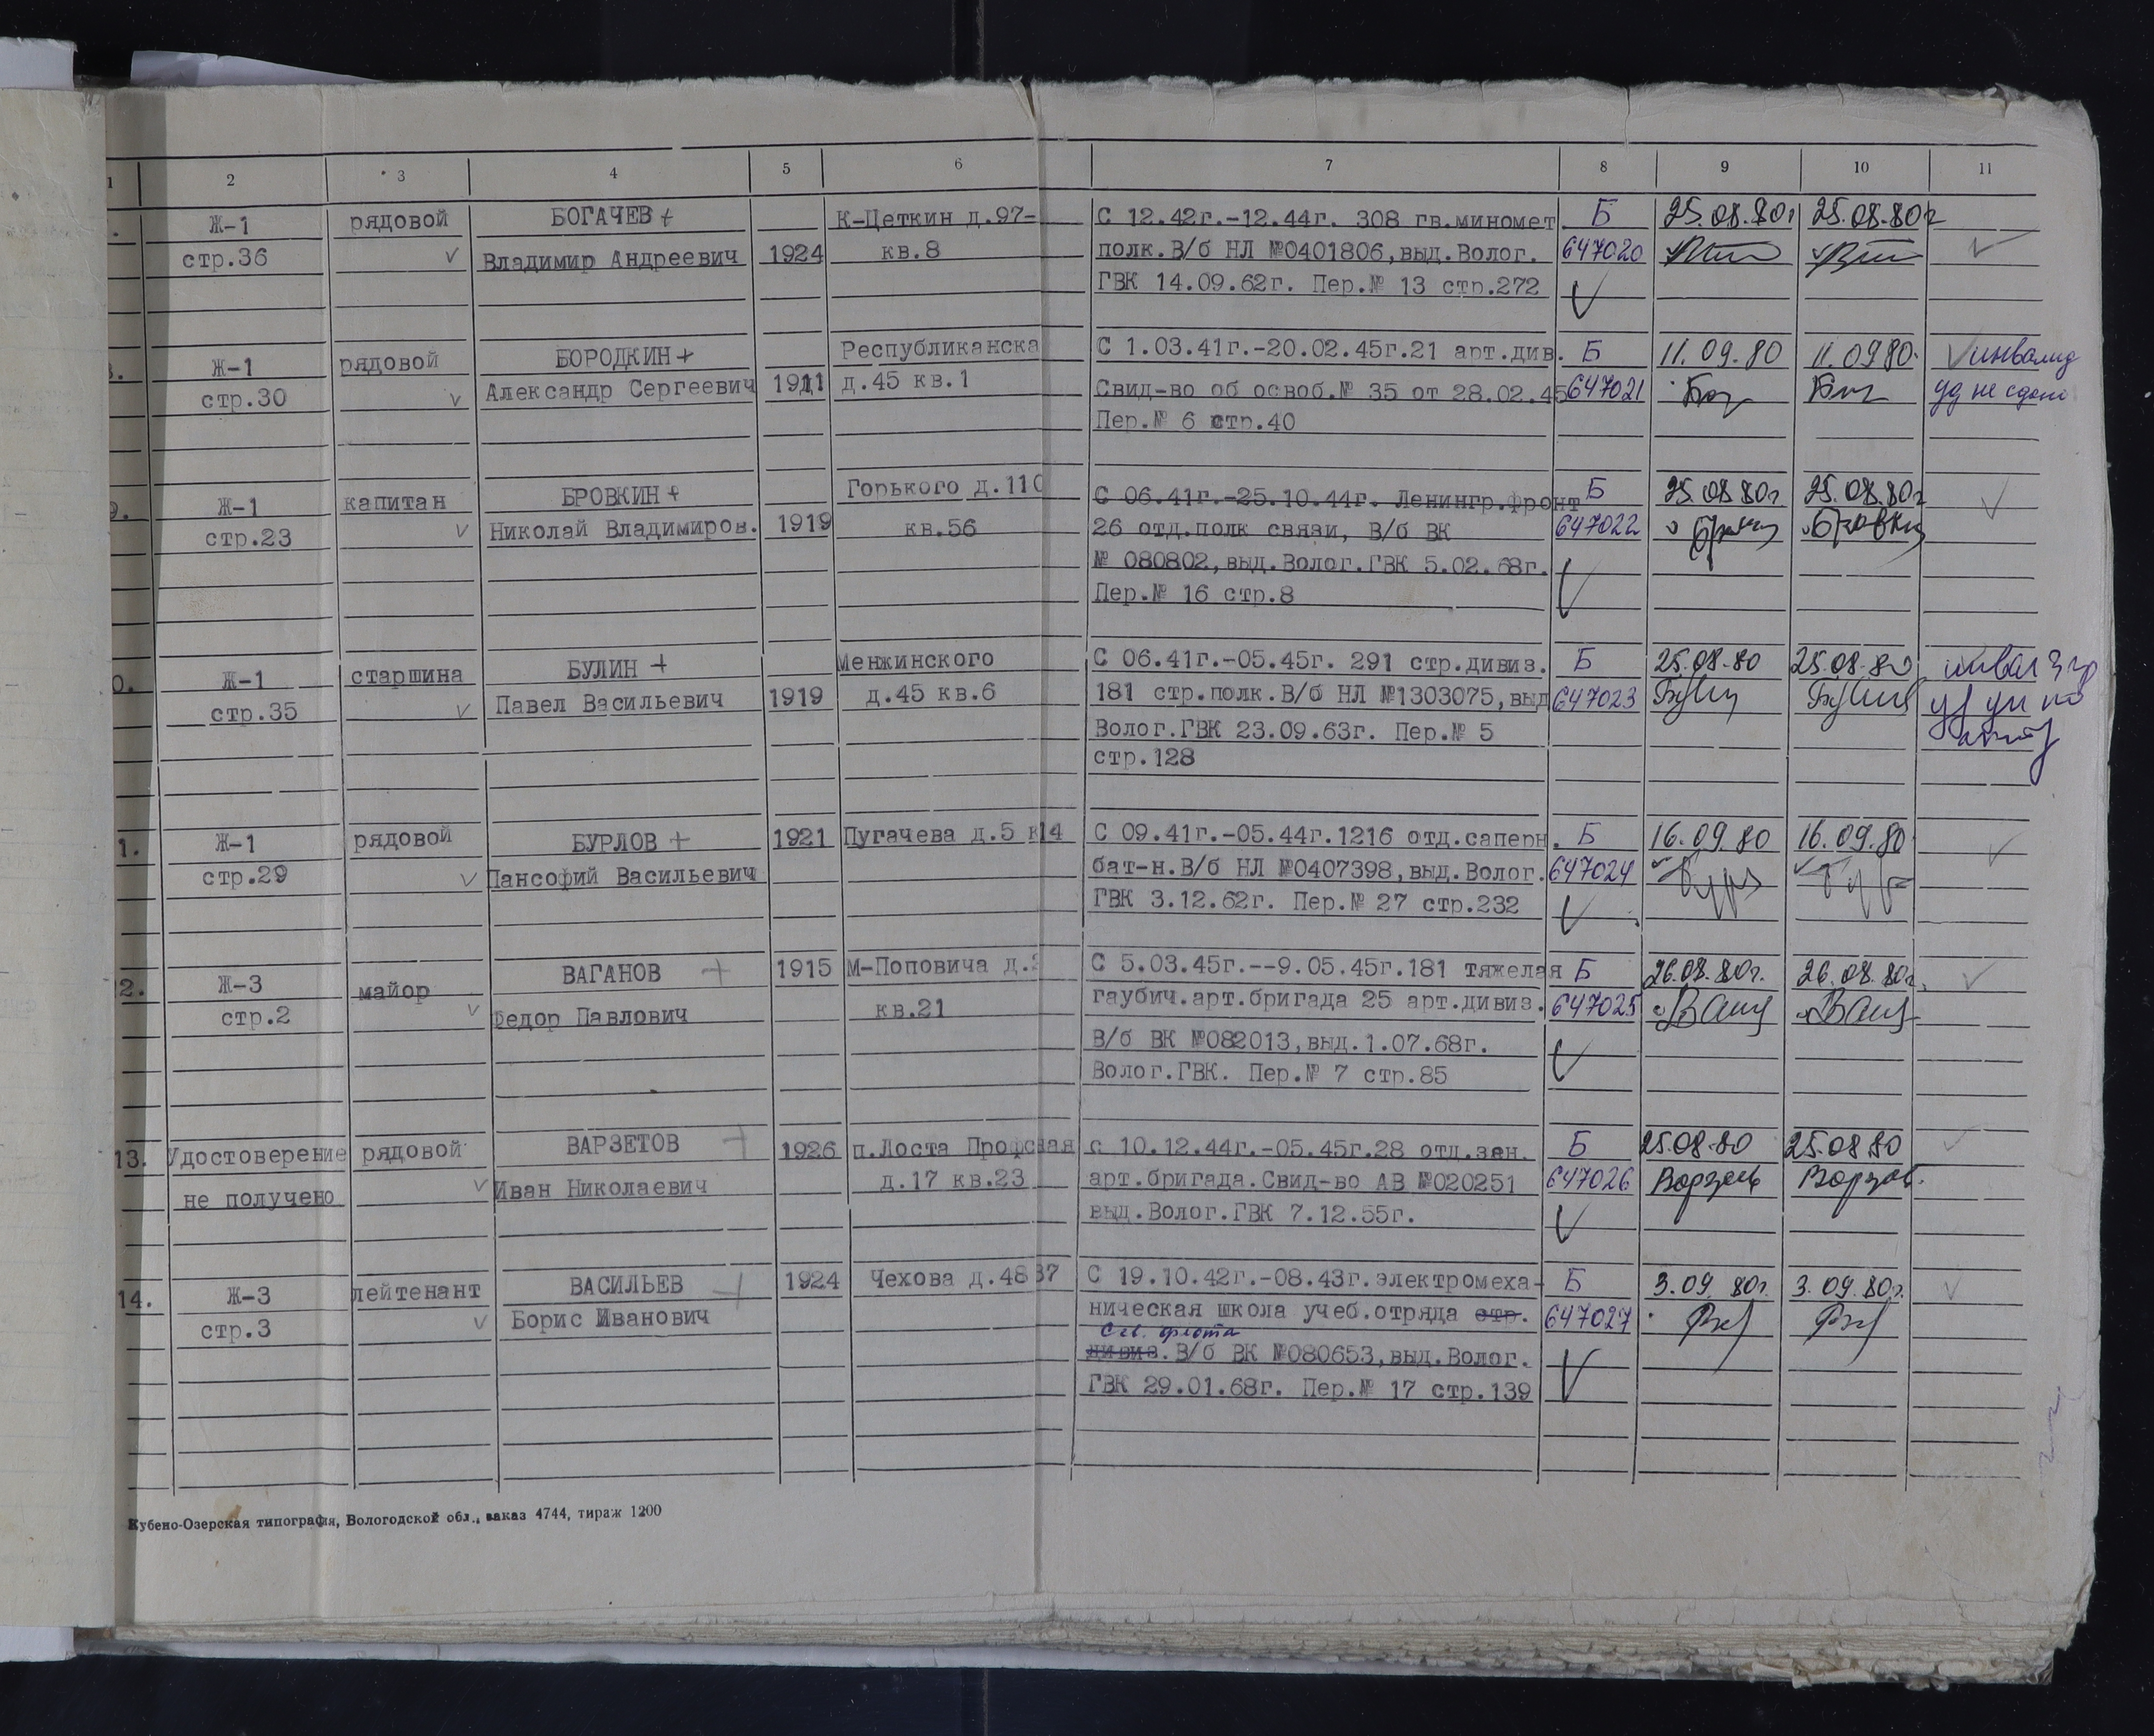 1 2 3 4 5 6 7 8 9 10 11
Ж-1 рядовой БОГАЧЕВ+ К-Цеткин д.97- С 12.42г.-12.44г. 308 гв.миномет Б 25.08.80г 25.08.80г
стр.36 Владимир Андреевич 1924 кв.8 полк.В/б НЛ №0401806,выд.Волог. 647020
ГВК 14.09.62г. Пер.№ 13 стр.272
Ж-1 рядовой БОРОДКИН+ Республиканска С 1.03.41г.-20.02.45г.21 арт.див. Б 11.09.80 11.0980. инвалид
стр.30 Александр Сергеевич 1911 д.45 кв.1 Свид-во об освоб.№ 35 от 28.02.45 647021 уд не сдано
Пер.№ 6 стр.40
9. Ж-1 капитан БРОВКИН+ Горького д.110 С 06.41г.-25.10.44г. Ленингр.фронт Б 25.08 80г 25.08.80г
стр.23 Николай Владимиров. 1919 кв.56 26 отд.полк связи, В/б ВК 647022
№ 080802,выд.Волог.ГВК 5.02.68г.
Пер.№ 16 стр.8
0. Ж-1 старшина БУЛИН + Менжинского С 06.41г.-05.45г. 291 стр.дивиз. Б 25.08.80 25.08.80
стр.35 Павел Васильевич 1919 д.45 кв.6 181 стр.полк.В/б НЛ №1303075,выд 647023
Волог.ГВК 23.09.63г. Пер.№ 5
стр.128
1. Ж-1 рядовой БУРЛОВ + 1921 Пугачева д.5 к14 С 09.41г.-05.44г.1216 отд.саперн. Б 16.09.80 16.09.80
стр.29 Пансофий Васильевич бат-н.В/б НЛ №0407398,выд.Волог. 647024
ГВК 3.12.62г. Пер.№ 27 стр.232
2. Ж-3 майор ВАГАНОВ + 1915 М-Поповича д. С 5.03.45г.--9.05.45г.181 тяжелая Б 26.08.80г. 26.08.80г.
стр.2 Федор Павлович кв.21 гаубич.арт.бригада 25 арт.дивиз. 647025
В/б ВК №082013,выд.1.07.68г.
Волог.ГВК. Пер.№ 7 стр.85
13. Удостоверение рядовой ВАРЗЕТОВ + 1926 п.Лоста Профсная с 10.12.44г.-05.45г.28 отд.зен. Б 25.08.80 25.08 80
не получено Иван Николаевич д.17 кв.23 арт.бригада.Свид-во АВ №020251 647026
выд.Волог.ГВК 7.12.55г.
14. Ж-3 лейтенант ВАСИЛЬЕВ + 1924 Чехова д.48 37 С 19.10.42г.-08.43г.электромеха- Б 3.09.80г. 3.09.80г.
стр.3 Борис Иванович ническая школа учеб.отряда стр. 647027
Сев. флота
дивиз.В/б ВК №080653,выд.Волог.
ГВК 29.01.68г. Пер.№ 17 стр.139
Кубено-Озерская типография, Вологодской обл., заказ 4744, тираж 1200